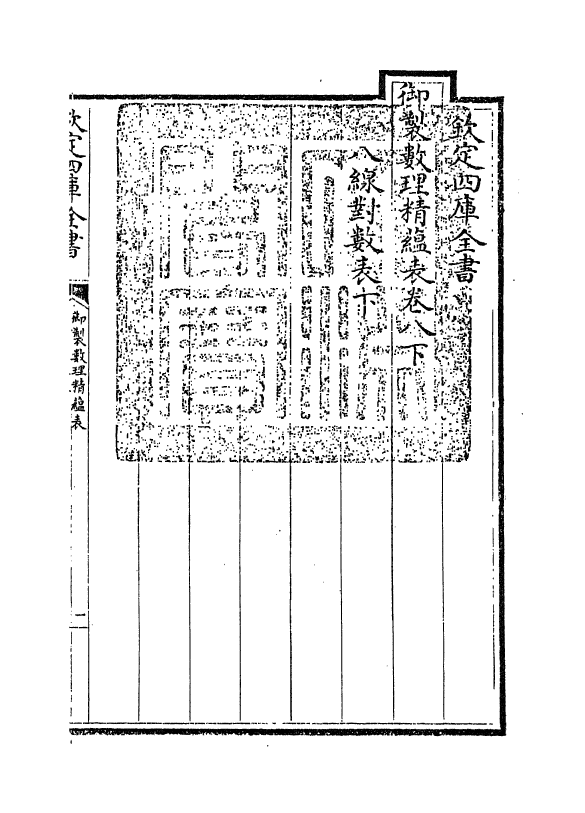 欽定四庫全書
御製數理精蘊表卷八下
八線對數表下
欽定四庫全書
御製數理精蘊表
一